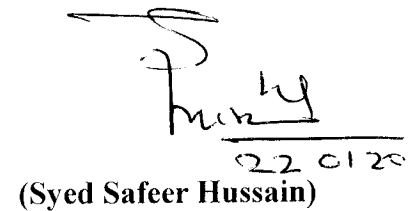 22 01 20
(Syed Safeer Hussain)